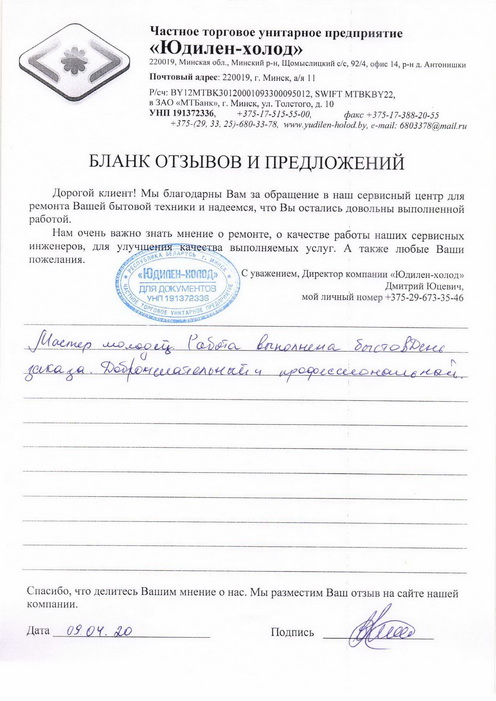 Частное торговое унитарное предприятие
«Юдилен-холод»
220019, Минская обл., Минский р-н, Щомыслицкий с/с, 92/4, офис 14, р-н д. Антонишки
Почтовый адрес: 220019, г. Минск, а/я 11
Р/сч: BY12MTBK30120001093300095012, SWIFT MTBKBY22,
в ЗАО «МТБанк», г. Минск, ул. Толстого, д. 10
УНП 191372336, +375-17-515-55-00, факс +375-17-388-20-55
+375-(29, 33, 25)-680-33-78, www.yudilen-holod.by, e-mail: 6803378@mail.ru
БЛАНК ОТЗЫВОВ И ПРЕДЛОЖЕНИЙ
Дорогой клиент! Мы благодарны Вам за обращение в наш сервисный центр для
ремонта Вашей бытовой техники и надеемся, что Вы остались довольны выполненной
работой.
Нам очень важно знать мнение о ремонте, о качестве работы наших сервисных
инженеров, для улучшения качества выполняемых услуг. А также любые Ваши
пожелания.
С уважением, Директор компании «Юдилен-холод»
Дмитрий Юцевич,
мой личный номер +375-29-673-35-46
РЕСПУБЛИКА БЕЛАРУСЬ г. МИНСК
«ЮДИЛЕН-ХОЛОД»
ДЛЯ ДОКУМЕНТОВ
УНП 191372336
ЧАСТНОЕ ТОРГОВОЕ УНИТАРНОЕ ПРЕДПРИЯТИЕ
Мастер молодец Работа выполнена быстов День
заказа. Доброжелательный и профессиональный.
Спасибо, что делитесь Вашим мнение о нас. Мы разместим Ваш отзыв на сайте нашей
компании.
Дата 09.04.20 Подпись